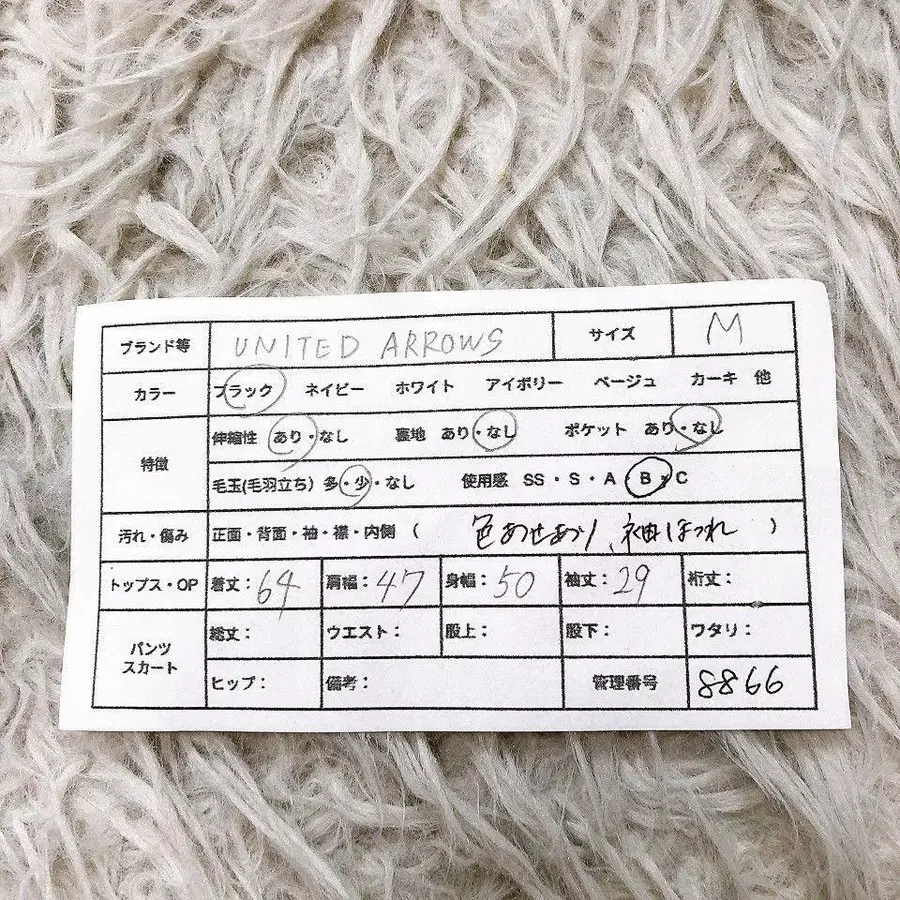 ブランド等 UNITED ARROWS サイズ M
カラー ブラック ネイビー ホワイト アイボリー ベージュ カーキ 他
特徴
伸縮性 あり・なし 裏地 あり・なし ポケット あり・なし
毛玉(毛羽立ち) 多・少・なし 使用感 SS・S・A・B・C
汚れ・傷み 正面・背面・袖・襟・内側 ( 色あせあり、袖ほつれ )
トップス・OP 着丈: 64 肩幅: 47 身幅: 50 袖丈: 29 裄丈:
パンツ スカート
総丈: ウエスト: 股上: 股下: ワタリ:
ヒップ: 備考: 管理番号 8866